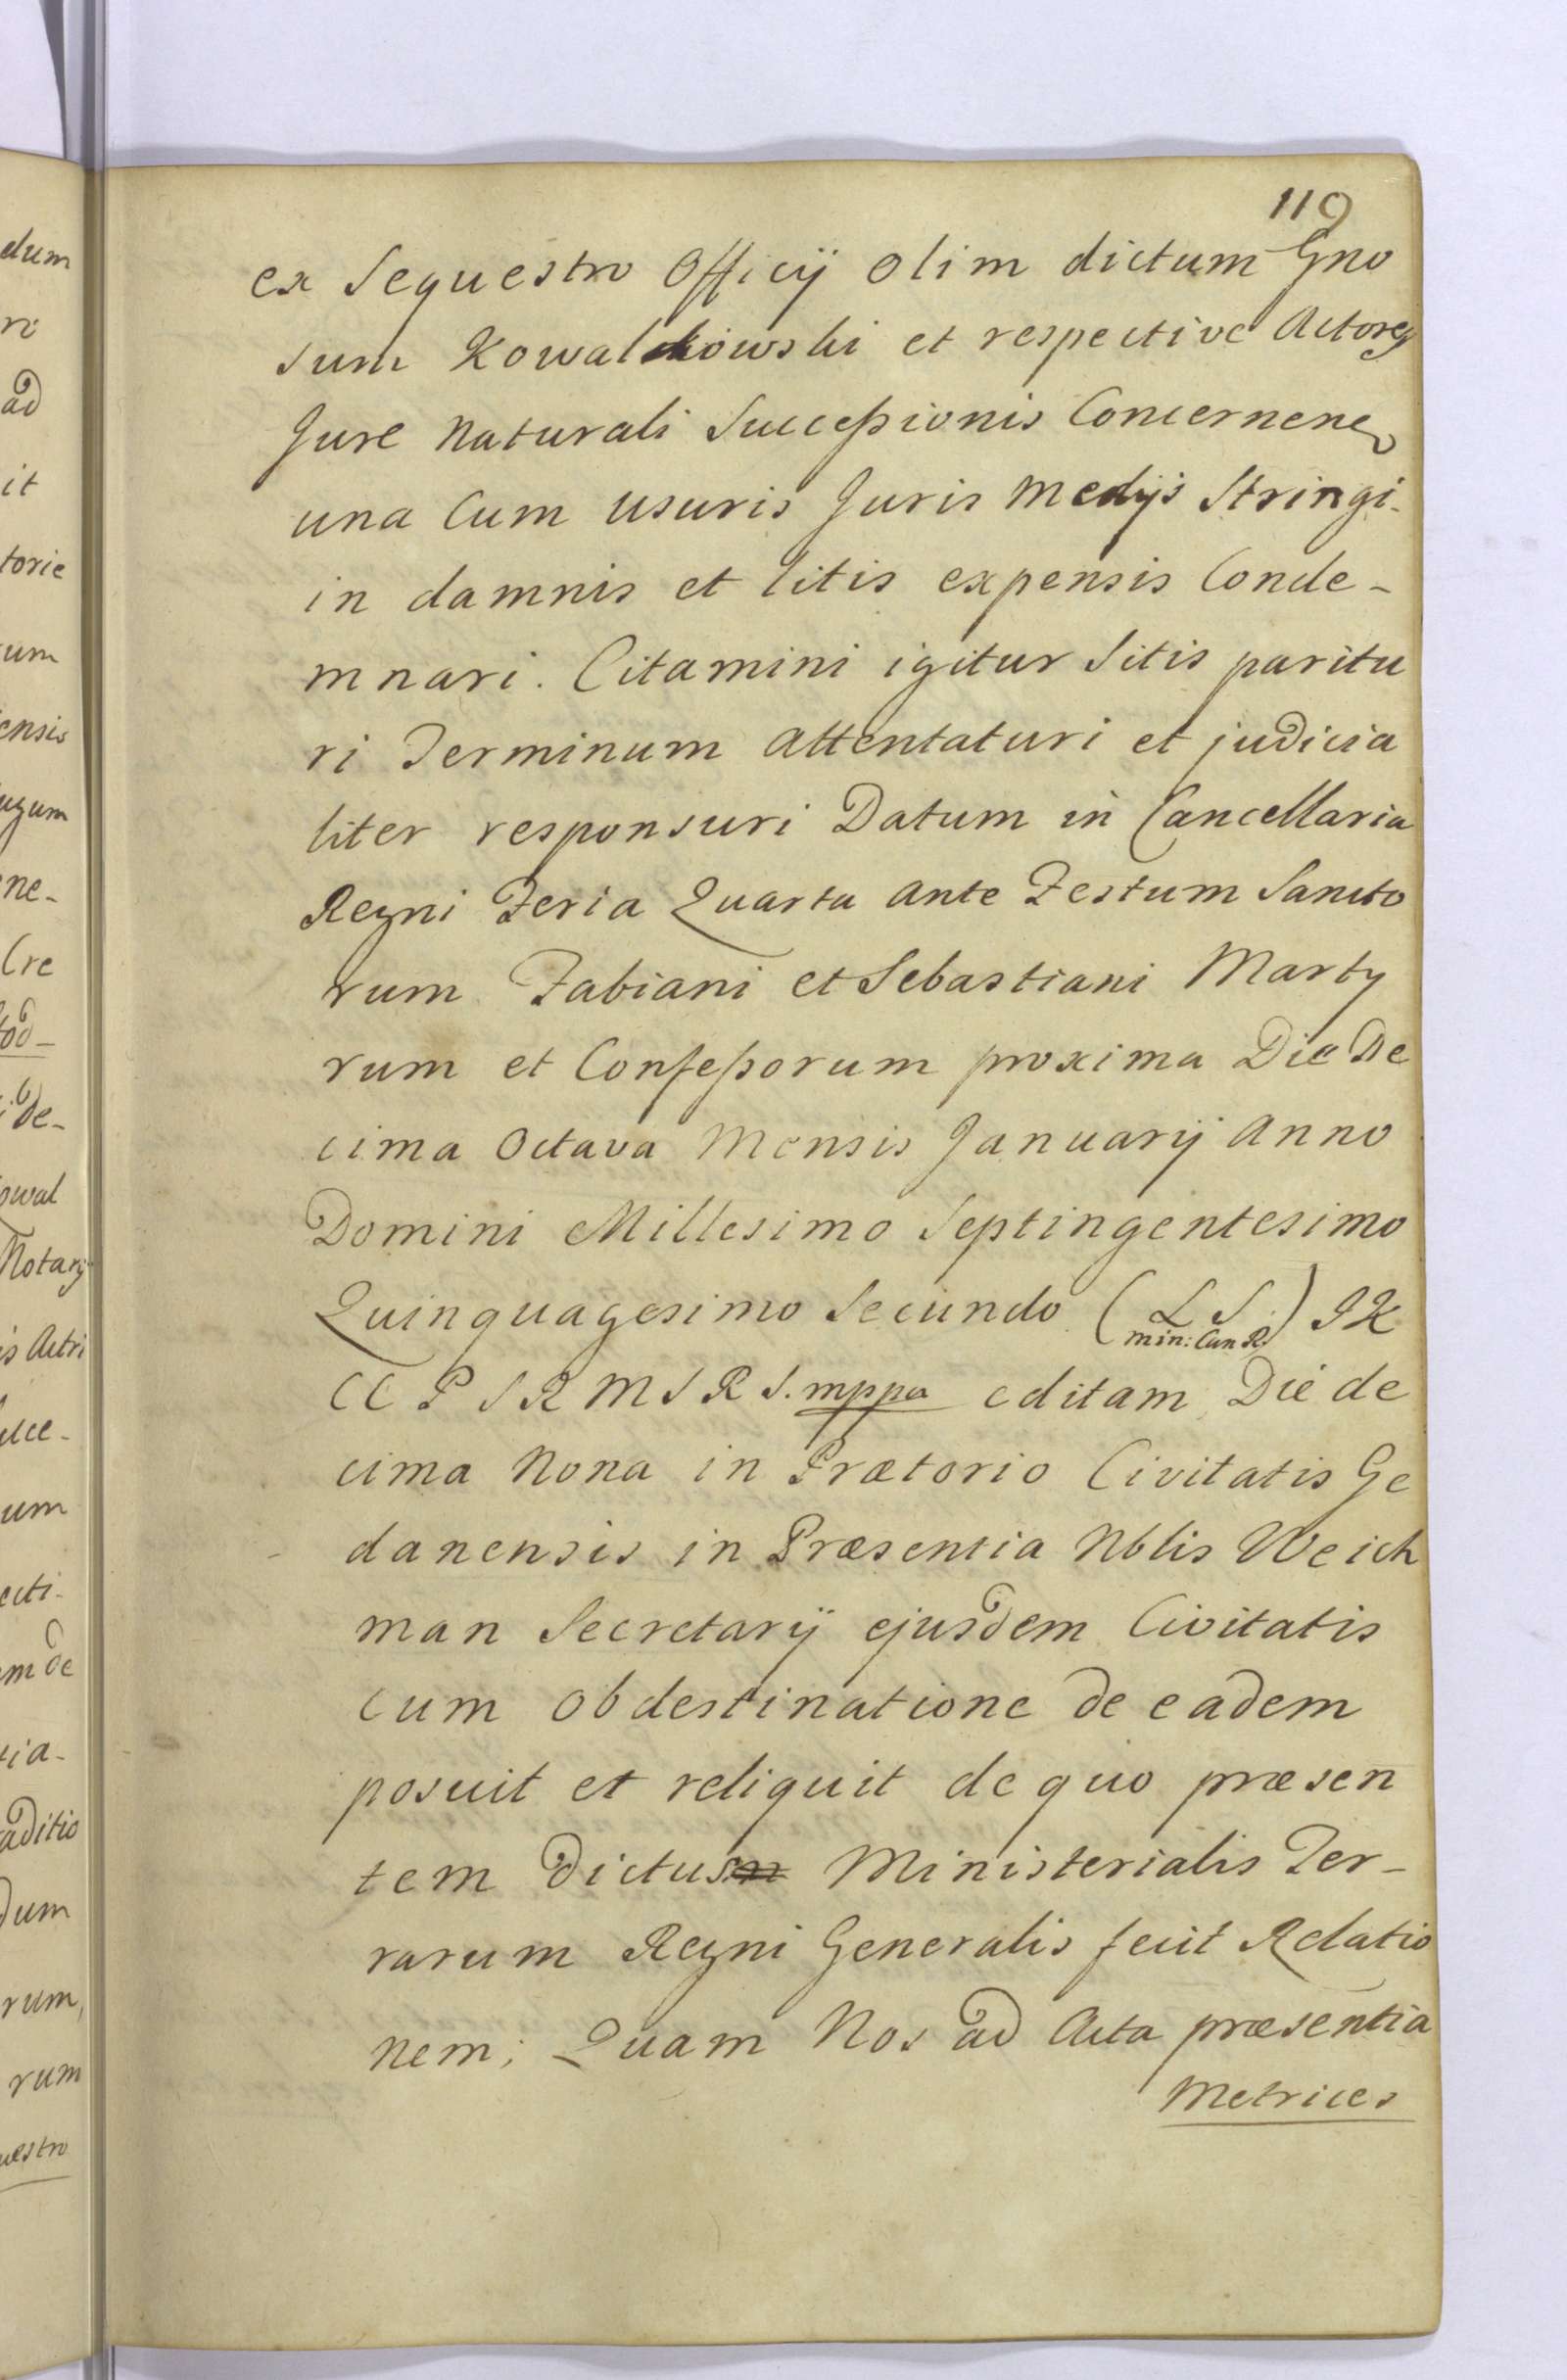 119
ex Sequestro Officij olim dictum Gno
sum Kowalkowski et respective Actores
Jure Naturali Successionis Concernen
una Cum usuris Juris Medijs Stringi.
in damnis et litis expensis Conde-
mnari. Citamini igitur Sitis paritu
ri Terminum attentaturi et judicia
liter responsuri Datum in Cancellaria
Regni Feria Quarta ante Festum Sancto
rum Fabiani et Sebastiani Marty
rum et Confessorum proxima Die De
cima Octava Mensis Januarij Anno
Domini Millesimo Septingentesimo
Quinquagesimo Secundo (L S) JK
min: Can R
CC P S R M S R S. mppa editam Die de
cima Nona in Prætorio Civitatis Ge
danensis in Præsentia Nblis Weich
man Secretarij ejusdem Civitatis
cum obdestinatione de eadem
posuit et reliquit de quo præsen
tem dictus Ministerialis Ter-
rarum Regni Generalis fecit Relatio
nem; Quam Nos ad Acta præsentia
Metrices
dum
ro
ad
it
torie
um
ensis
ne-
Cre
tod-
de-
owal
Notarij
is Actri
um
cti-
m de
tia-
aditio
dum
rum,
rum
uestro